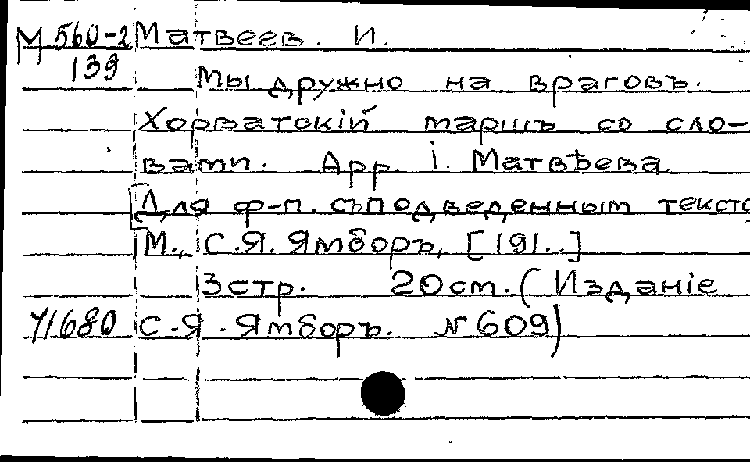 М 560-2 Матвеев. И.
139 Мы дружно на враговъ.
Хорватскій маршъ со сло-
вами. Арр. І. Матвѣева
[Для ф-п. съ подведенным тексто
М., С.Я. Ямборъ, [191..]
3 стр. 20 см. (Изданіе
У1680 С.Я. Ямборъ. № 609)